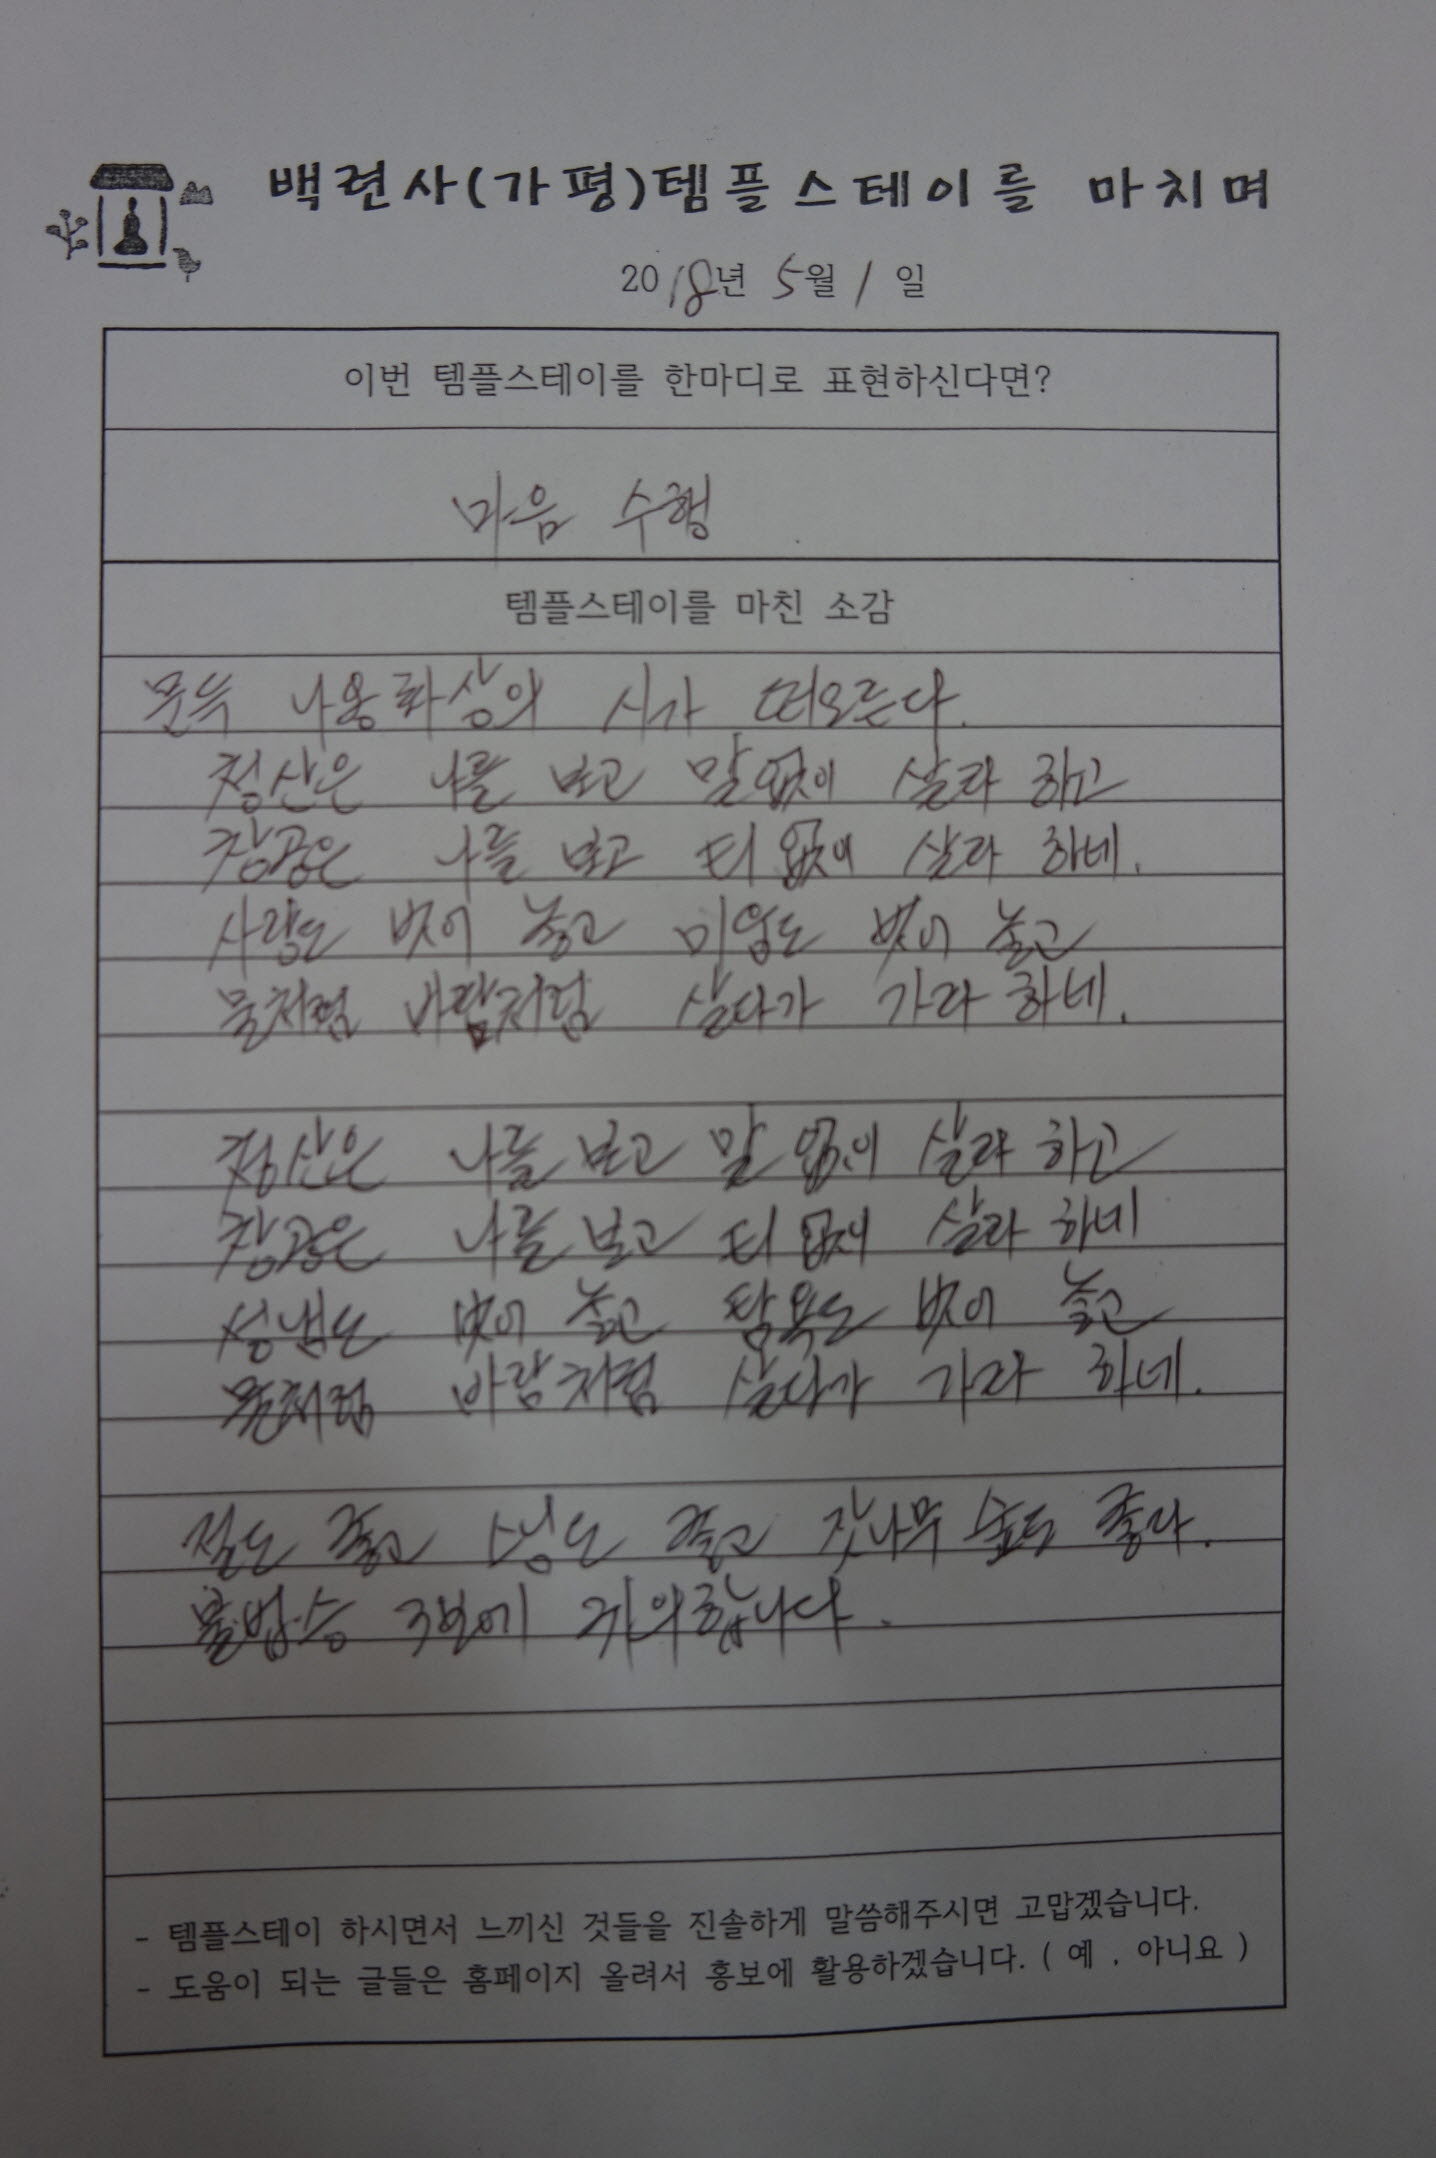 백련사(가평)템플스테이를 마치며
2018년 5월 1일
이번 템플스테이를 한마디로 표현하신다면?
마음 수행
템플스테이를 마친 소감
문득 나옹화상의 시가 떠오른다.
청산은 나를 보고 말없이 살라 하고
창공은 나를 보고 티 없이 살라 하네.
사랑도 벗어 놓고 미움도 벗어 놓고
물처럼 바람처럼 살다가 가라 하네.
청산은 나를 보고 말 없이 살라 하고
창공은 나를 보고 티 없이 살라 하네
성냄도 벗어 놓고 탐욕도 벗어 놓고
물처럼 바람처럼 살다가 가라 하네.
절도 좋고 스님도 좋고 잣나무 숲도 좋다.
불·법·승 3보에 귀의합니다.
- 템플스테이 하시면서 느끼신 것들을 진솔하게 말씀해주시면 고맙겠습니다.
- 도움이 되는 글들은 홈페이지 올려서 홍보에 활용하겠습니다. ( 예 , 아니요 )